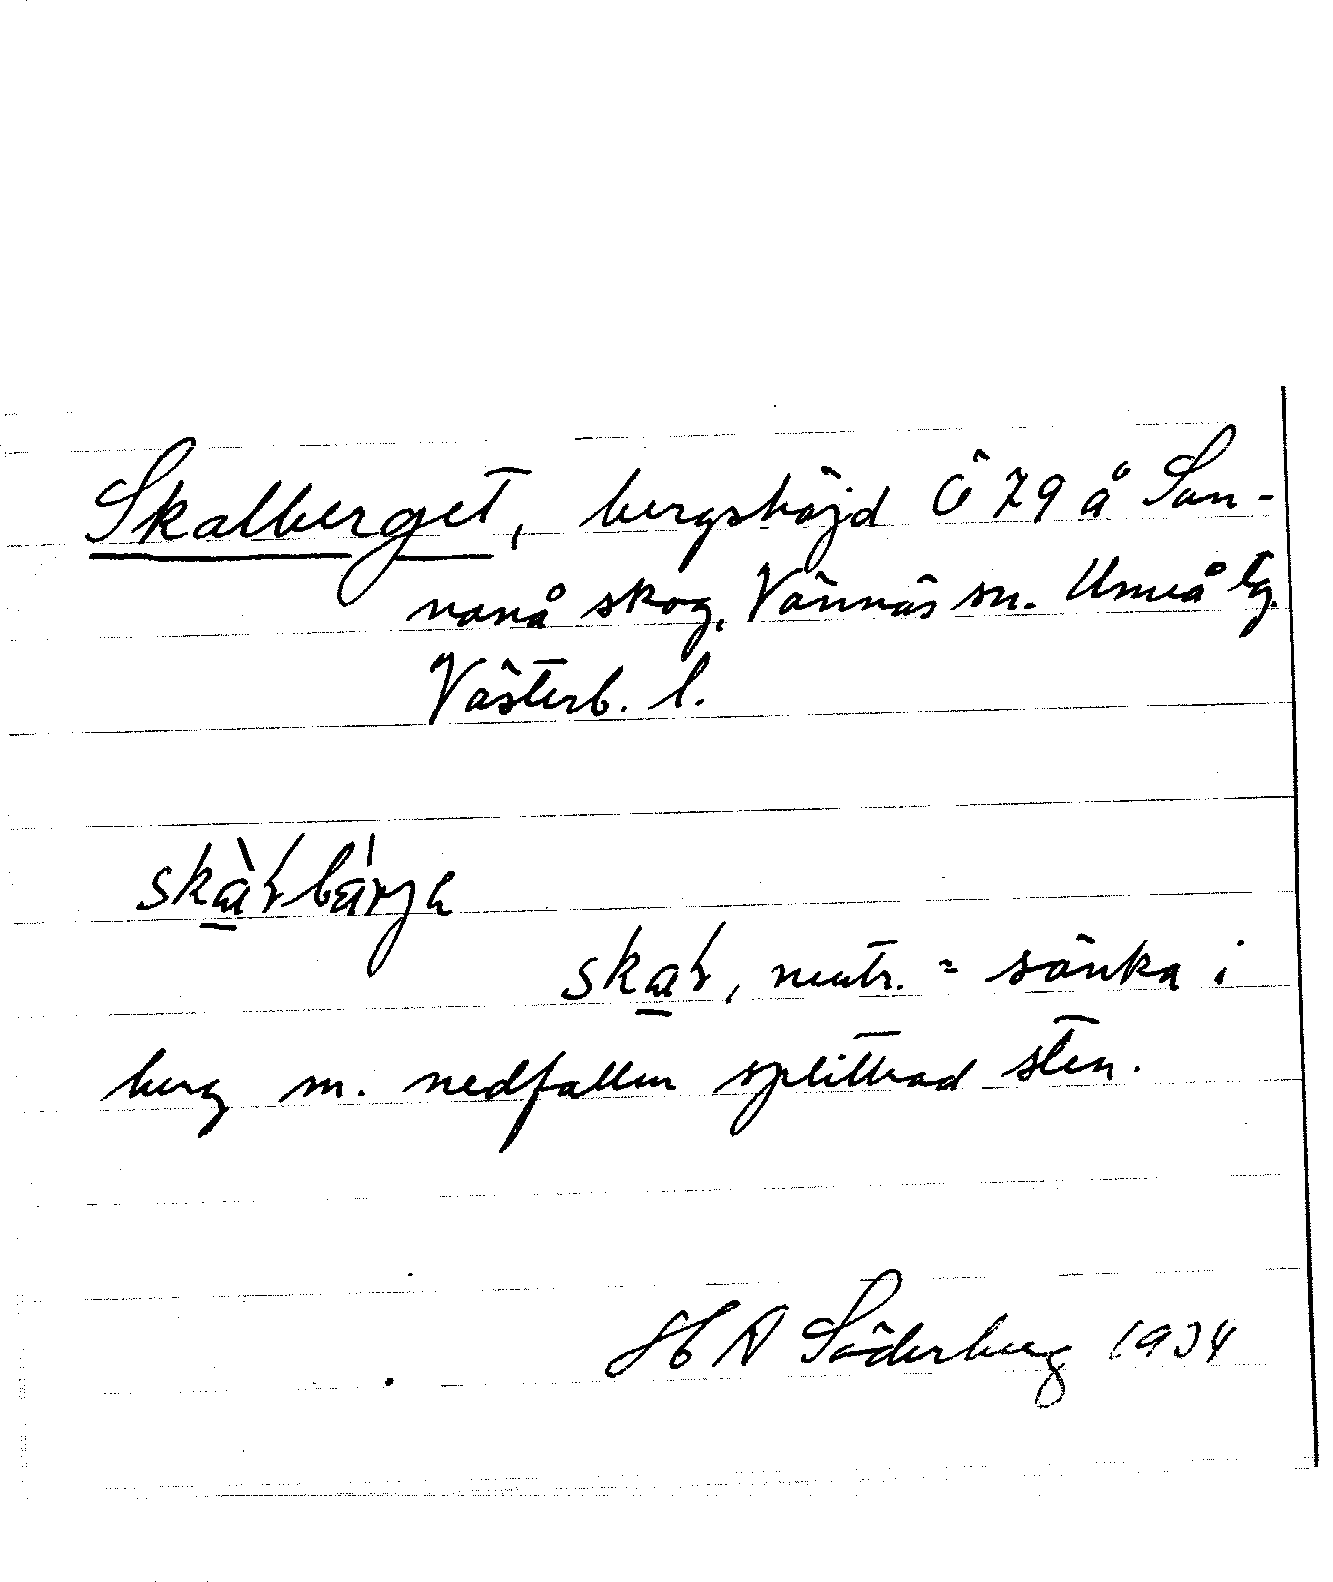 Skalberget, bergshöjd Ö 79 å Sun-
nanå skog, Vännäs sn. Umeå tg.
Västerb. l.
skàɽbárja
skaɽ, neutr. = sänka i
berg m. nedfallen splittrad sten.
H A Söderberg 1934